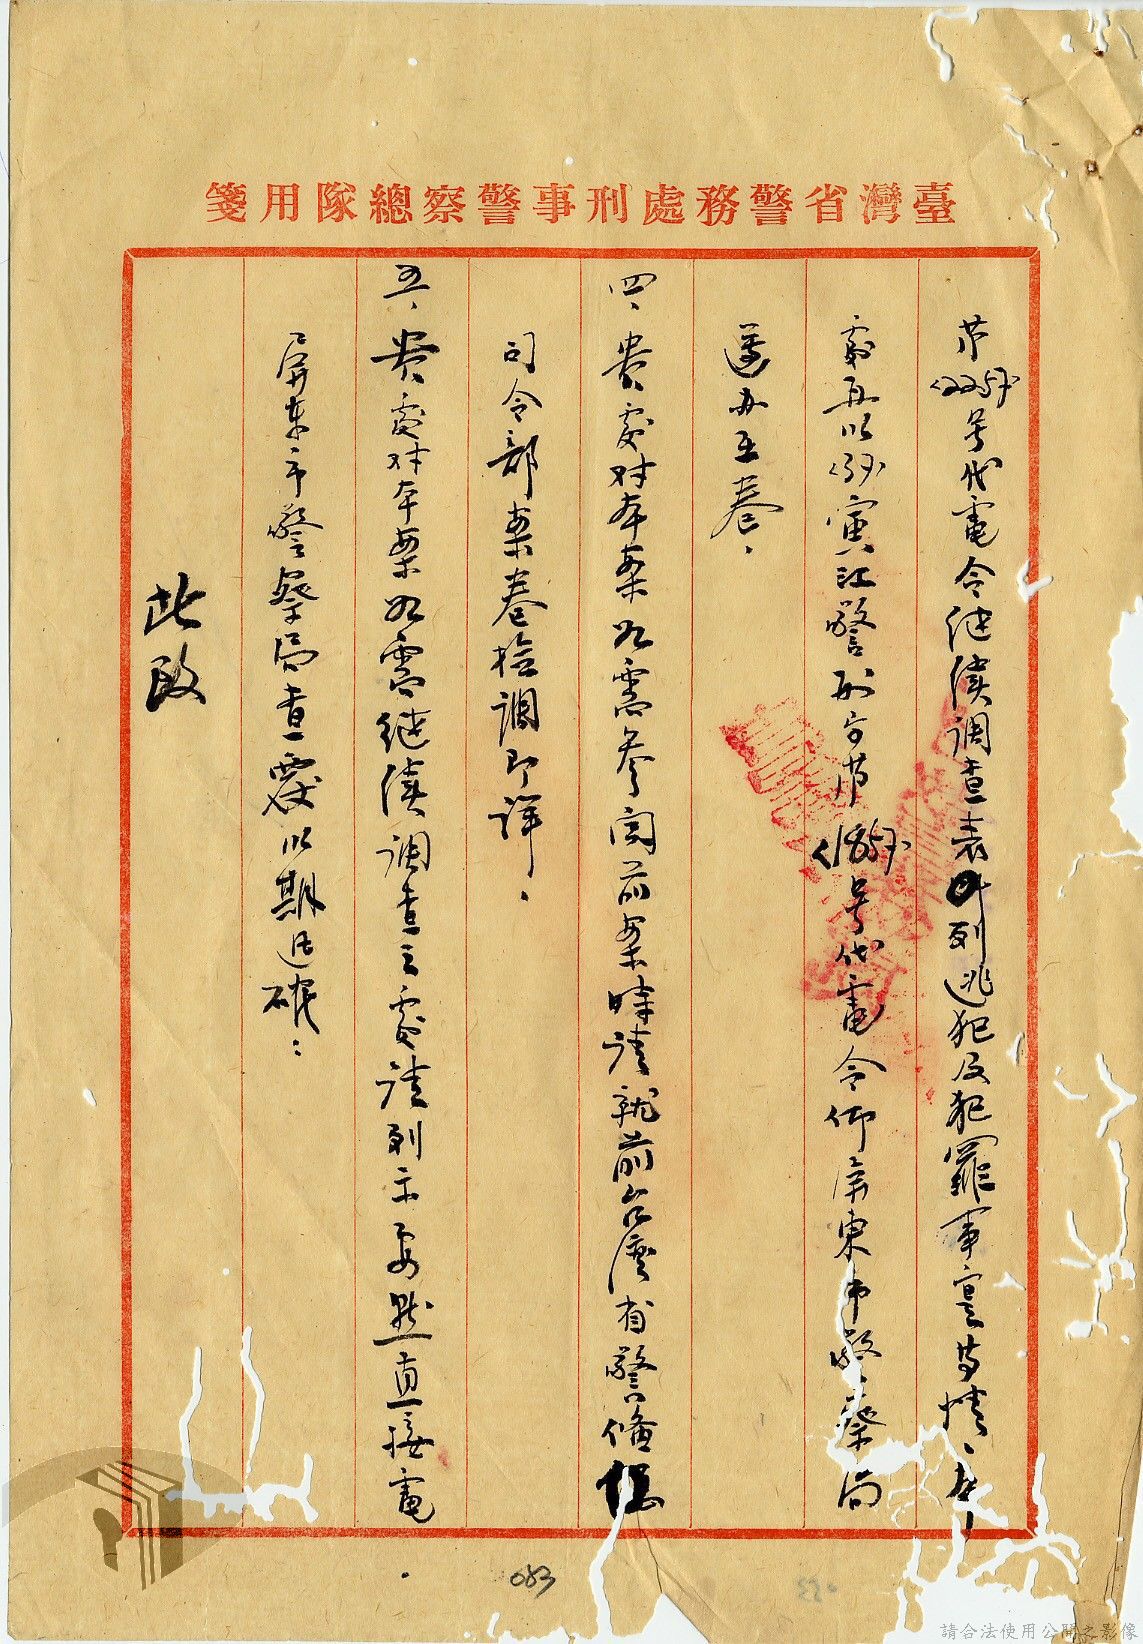 臺灣省警務處刑事警察總隊用箋
第(2257)号代電令继續调查表列逃犯及犯罪事實等情、本
處再以(37)寅江警刑字第(1857)号代電令仰屏東市警察局
遵办在卷、
四、貴處对本案如需參阅前案時请就前台湾省警備
司令部案卷检调即詳、
五、貴處对本案如需继續调查之處请列示要點直接電
屏東市警察局查覆以期迅確：
此致
083
請合法使用公開之影像